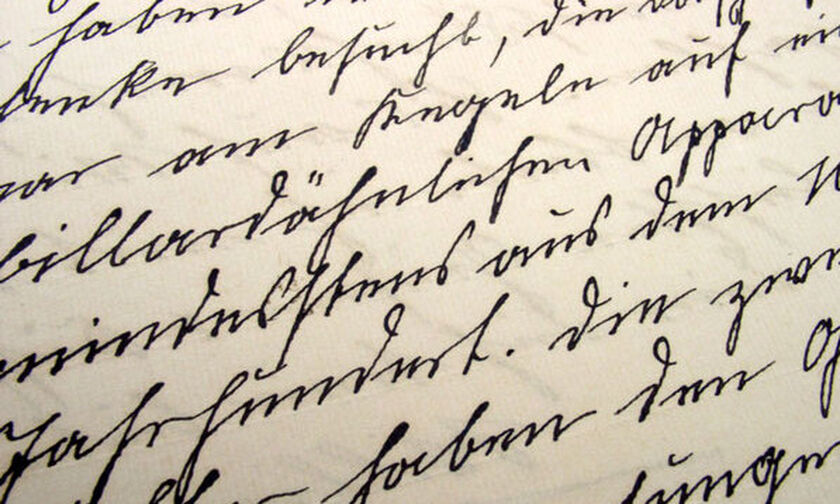 haben
besucht, die
war am Kegeln auf ei
billardähnlichen Appara
mindesstens aus dem
Jahrhundert. Die zwe
haben den G